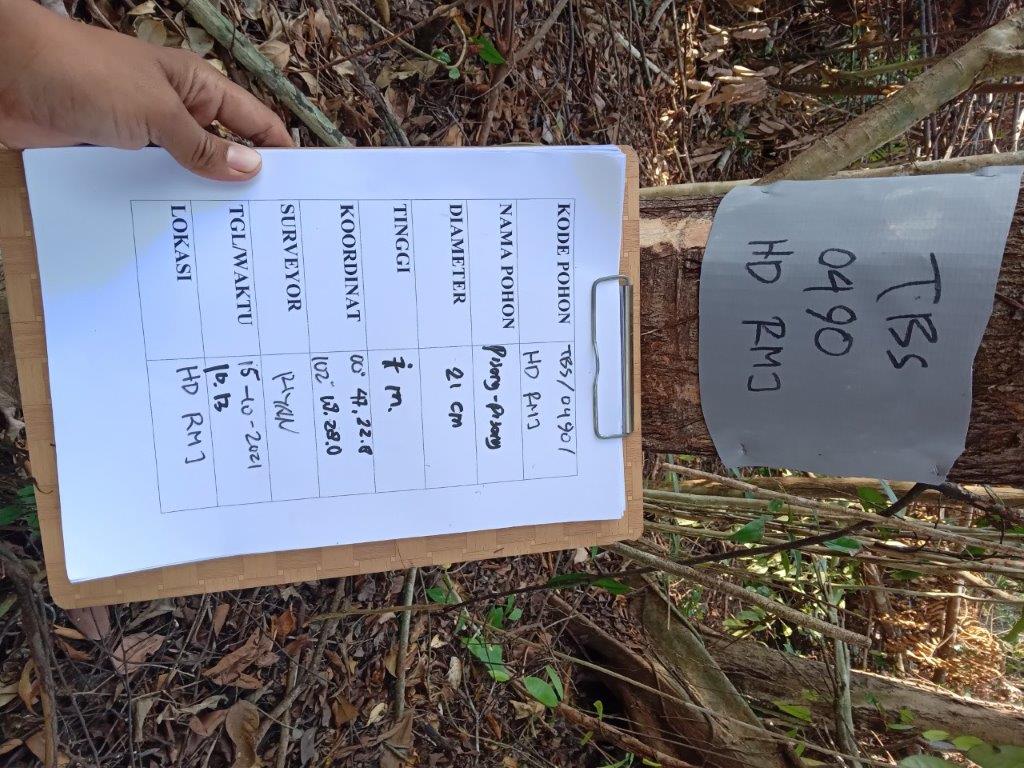 TBS
0490
HD RMJ
KODE POHON TBS/0490/
HD RMJ
NAMA POHON Pisang-Pisang
DIAMETER 21 cm
TINGGI 7 m.
KOORDINAT 00° 47,22.8
102°
SURVEYOR RYAN
TGL/WAKTU 15-10-2021
10.13
LOKASI HD RMJ